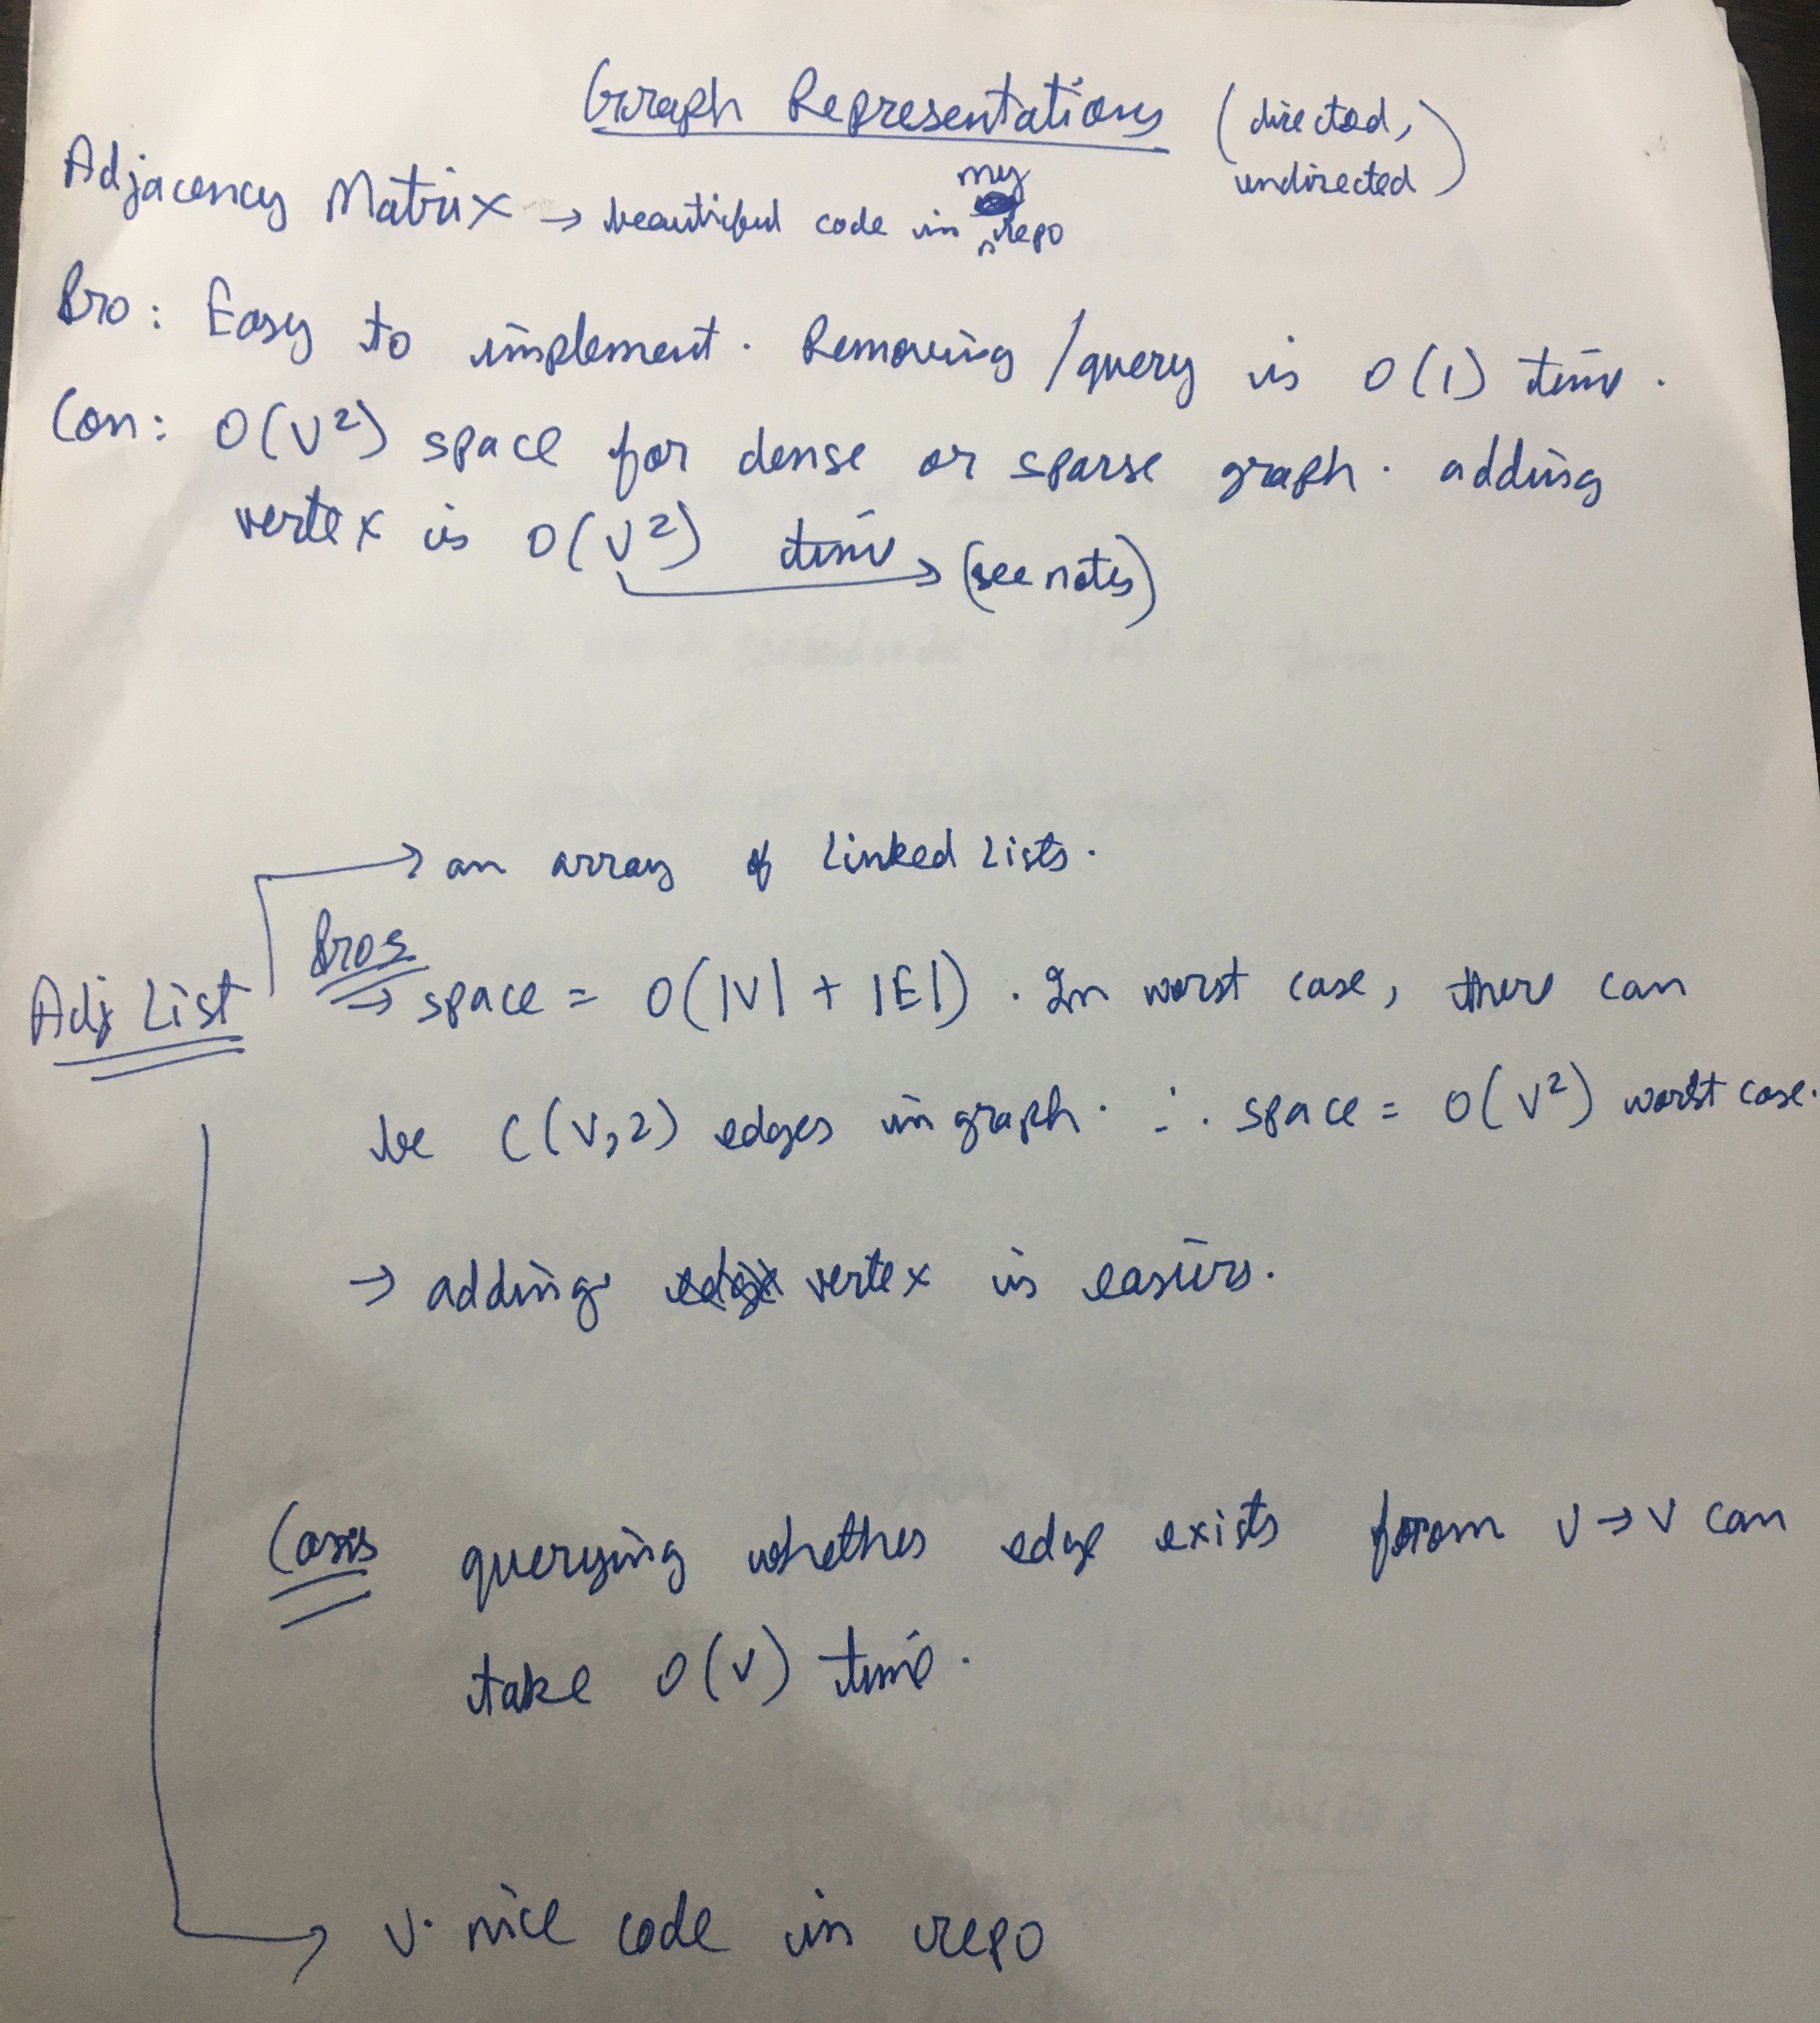 Graph Representations (directed, undirected)
Adjacency Matrix → beautiful code in my repo
Pro: Easy to implement. Removing/query is O(1) time.
Con: O(V²) space for dense or sparse graph. adding
vertex is O(V²) time → (see notes)
→ an array of Linked Lists.
Adj List
Pros
→ space = O(|V| + |E|). In worst case, there can
be C(V,2) edges in graph. ∴ space = O(V²) worst case.
→ adding vertex is easier.
Cons querying whether edge exists from V→V can
take O(V) time.
→ V. nice code in repo